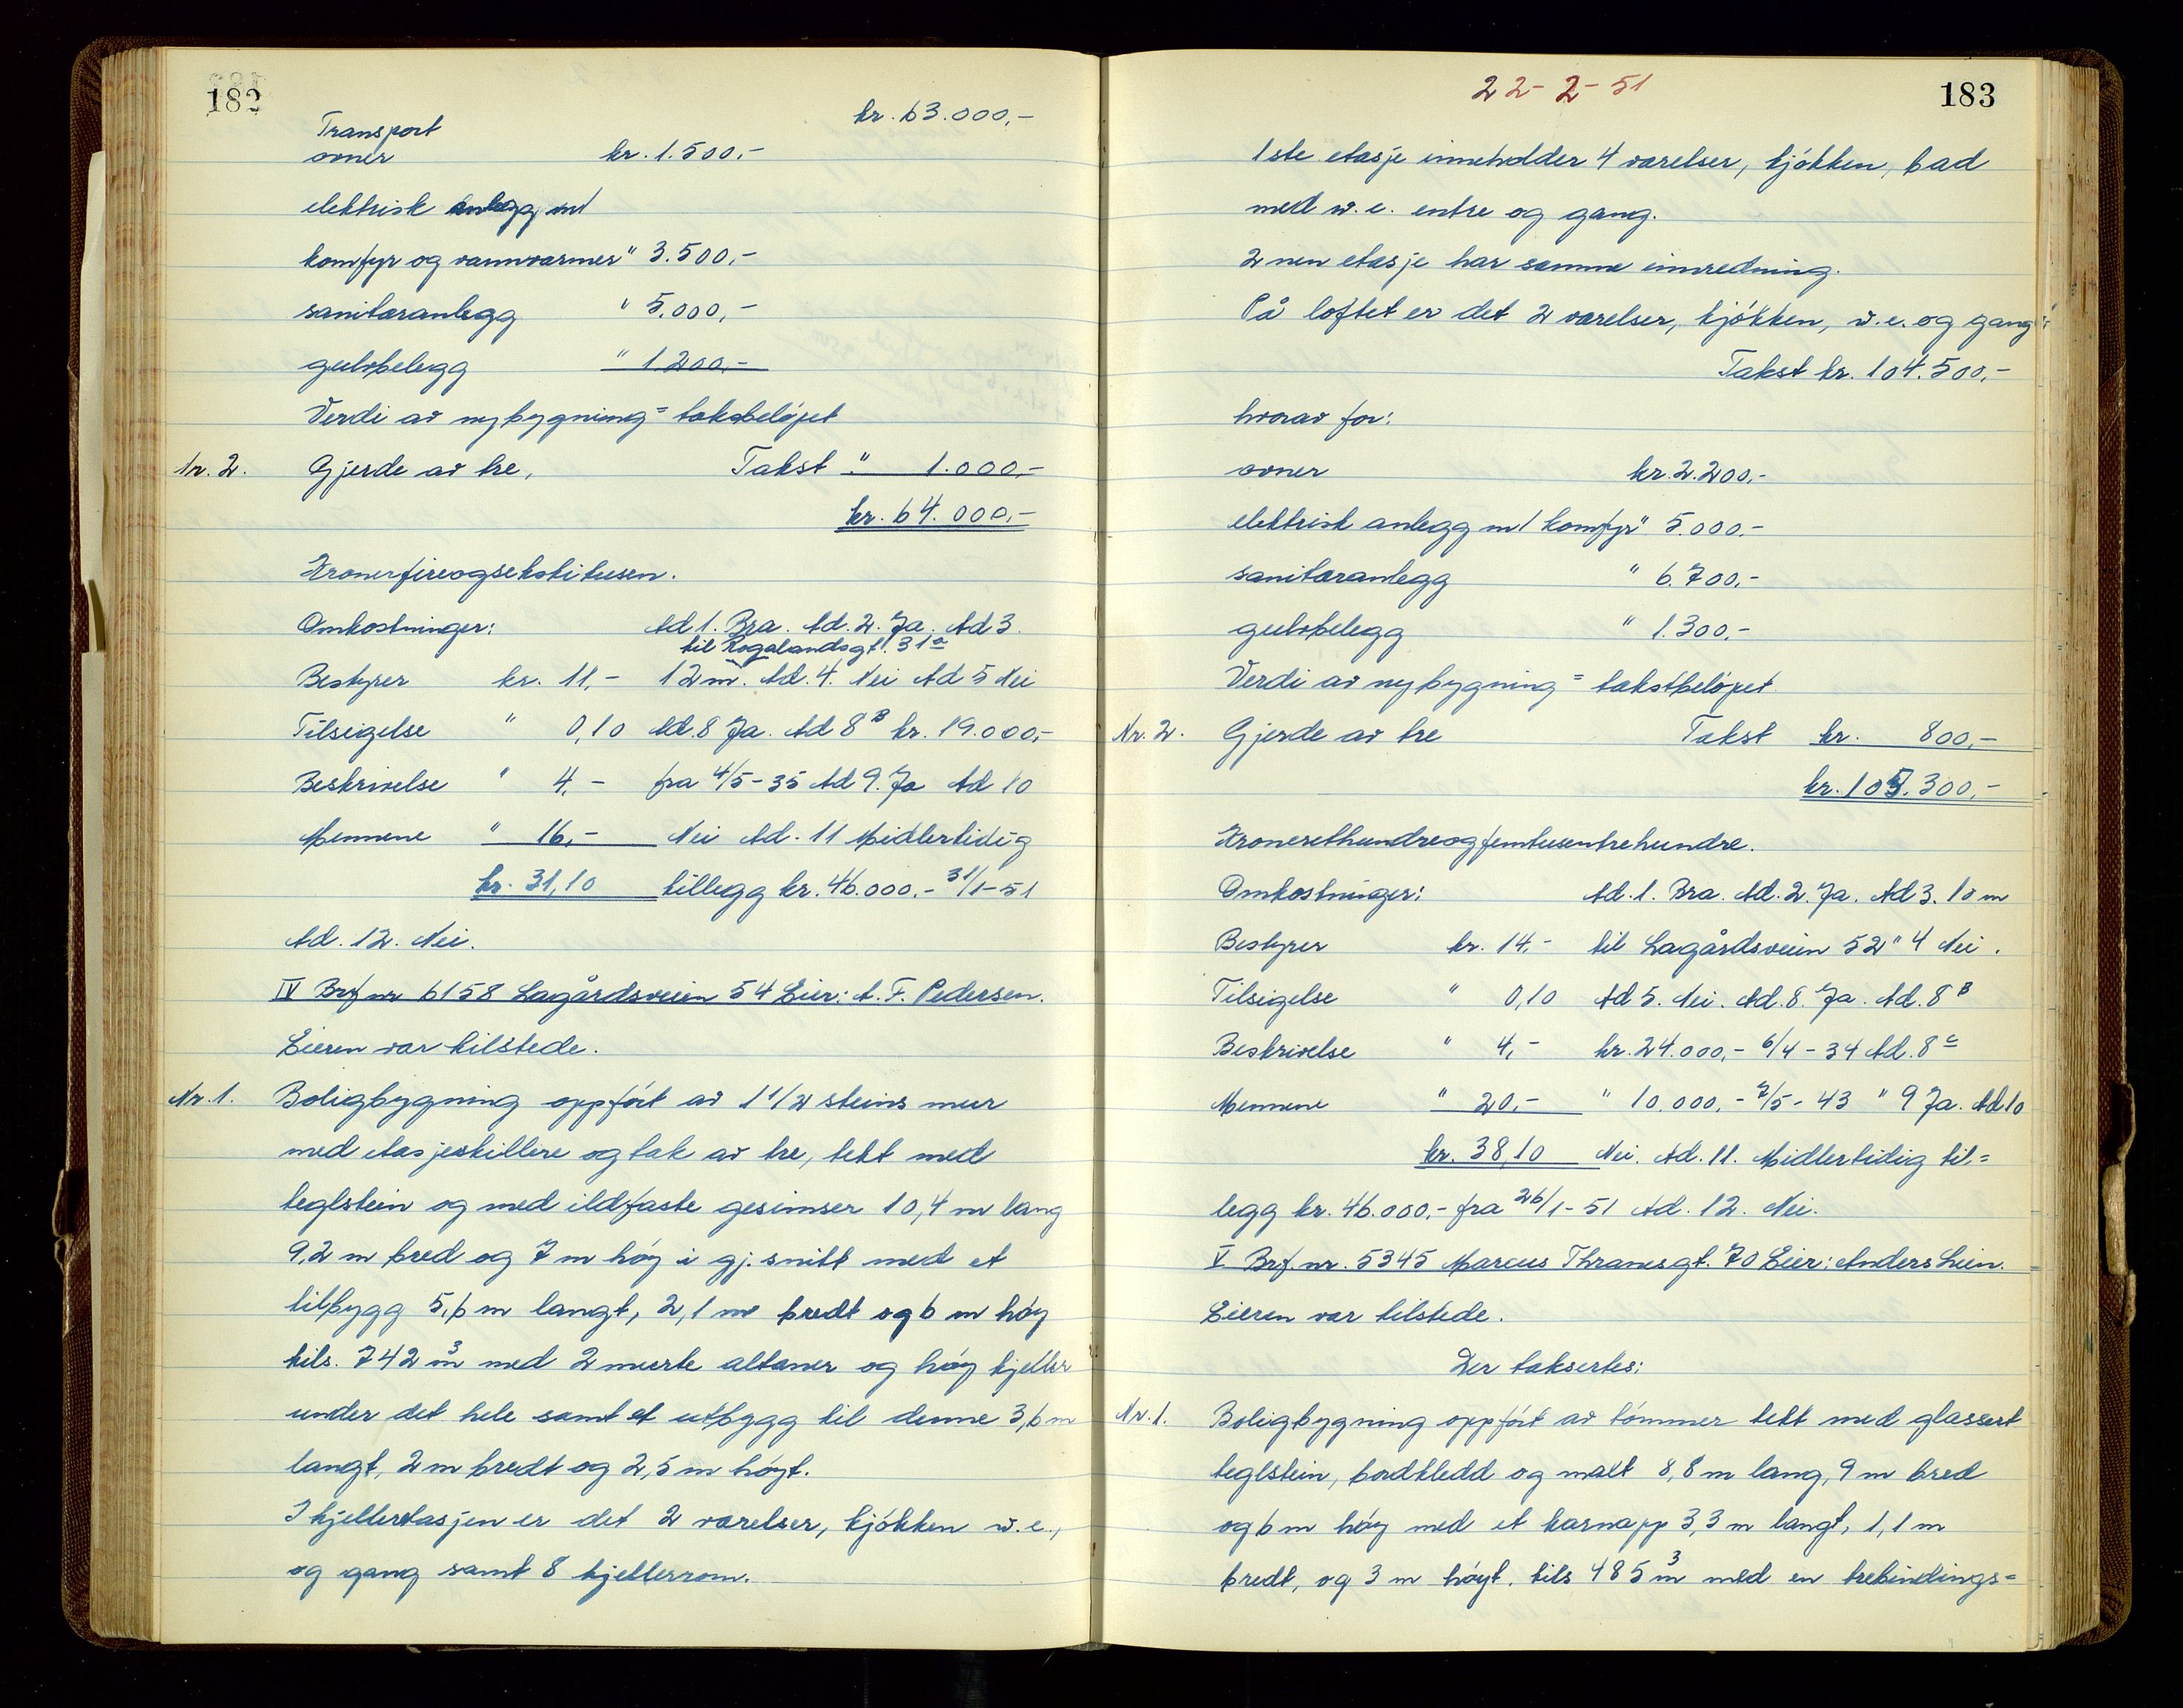 182
Transport kr. 63.000,-
ovner kr. 1.500,-
elektrisk anlegg m/
komfyr og vannvarmer " 3.500,-
sanitæranlegg " 5.000,-
gulvbelegg " 1200,-
Verdi av nybygning = takstbeløpet
Nr. 2. Gjerde av tre, Takst " 1.000,-
kr. 64.000,-
Kronerfireogsekstitusen.
Omkostninger: Ad 1. Bra. Ad. 2. Ja. Ad 3.
til Rogalandsgt. 31a
Bestyrer kr. 11,- 12 m. Ad. 4. Nei Ad 5 Nei
Tilsigelse " 0,10 Ad. 8 Ja. Ad 8B kr. 19.000,-
Beskrivelse " 4,- fra 4/5-35 Ad 9. Ja Ad 10
Mennene " 16,- Nei Ad. 11 Midlertidig
kr. 31,10 tillegg kr. 46.000.- 31/1-51
Ad. 12. Nei.
IV Brf nr 6158 Lagårdsveien 54 Eier: A. F. Pedersen.
Eieren var tilstede.
Nr. 1. Boligbygning oppført av 1 1/2 steins mur
med etasjeskillere og tak av tre, tekt med
teglstein og med ildfaste gesimser 10,4 m lang
9,2 m bred og 7 m høy i gj. snitt med et
tilbygg 5,6 m langt, 2,1 m bredt og 6 m høy
tils. 742 m3 med 2 murte altaner og høy kjeller
under det hele samt et utbygg til denne 3,6 m
langt, 2 m bredt og 2,5 m høyt.
I kjelleretasjen er det 2 værelser, kjøkken w.c.,
og gang samt 8 kjellerrom.
22-2-51
183
1ste etasje inneholder 4 værelser, kjøkken, bad
med w.c. entre og gang.
2nen etasje har samme innredning.
På loftet er det 2 værelser, kjøkken, w.c. og gang
Takst kr. 104.500,-
hvorav for:
ovner kr. 2.200,-
elektrisk anlegg m/ komfyr " 5.000.-
sanitæranlegg " 6.700,-
gulvbelegg " 1.300,-
Verdi av nybygning = takstbeløpet
Nr. 2. Gjerde av tre Takst kr. 800,-
kr. 105.300,-
Kroneretthundreogfemtusentrehundre.
Omkostninger: Ad. 1. Bra. Ad. 2. Ja. Ad 3. 10 m
Bestyrer kr. 14,- til Lagårdsveien 52 " 4 Nei.
Tilsigelse " 0,10 Ad 5. Nei. Ad. 8. Ja. Ad. 8B
Beskrivelse " 4,- kr. 24.000,- 6/4-34 Ad. 8c
Mennene " 20,- " 10.000,- 7/5-43 " 9 Ja. Ad 10
kr. 38,10 Nei. Ad. 11. Midlertidig til=
legg kr. 46.000,- fra 26/1-51 Ad. 12. Nei.
V Brf. nr. 5345 Marcus Thranesgt. 70 Eier: Anders Lein.
Eieren var tilstede.
Der takseres:
Nr. 1. Boligbygning oppført av tømmer tekt med glassert
teglstein, bordkledd og malt 8,8 m lang, 9 m bred
og 6 m høy med et karnapp 3,3 m langt, 1,1 m
bredt, og 3 m høyt. tils 485 m3 med en trebindings=